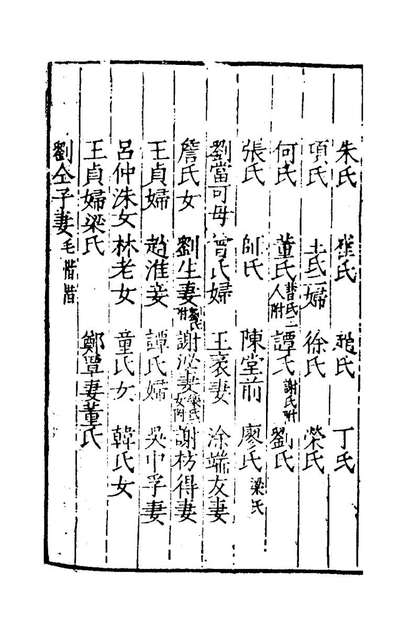 朱氏 崔氏 趙氏 丁氏
項氏 王氏二婦 徐氏 榮氏
何氏 董氏 譚氏 謝氏附 劉氏
張氏 師氏 陳堂前 廖氏 梁氏
劉當可母 曾氏婦 王袤妻 涂端友妻
詹氏女 劉生妻 謝泌妻 樂氏女附 謝枋得妻
王貞婦 趙淮妾 譚氏婦 吳中孚妻
呂仲洙女 林老女 童氏女 韓氏女
王貞婦梁氏 鄭覃妻董氏
劉仝子妻 毛惜惜